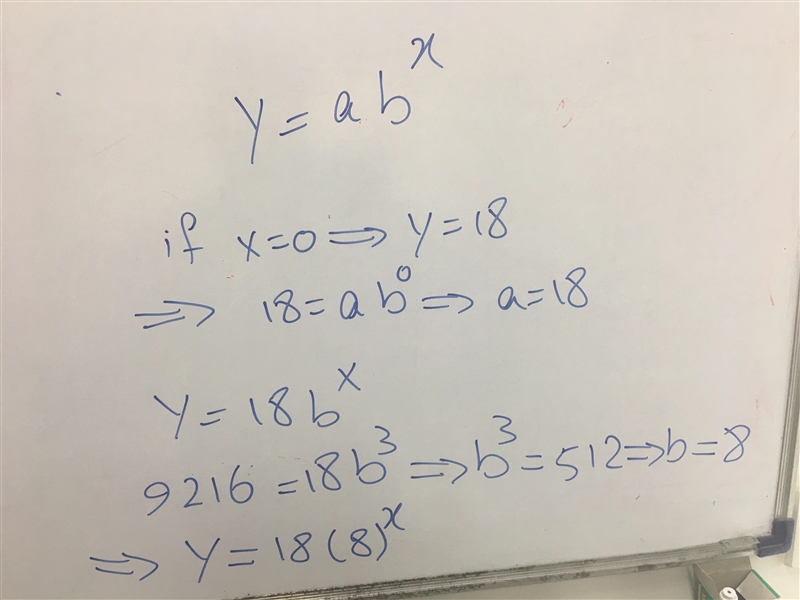 y = ab^x
if x=0 ⇒ y=18
⇒ 18=ab^0 ⇒ a=18
y = 18b^x
9216 =18b^3 ⇒ b^3 = 512 ⇒ b=8
⇒ y = 18(8)^x